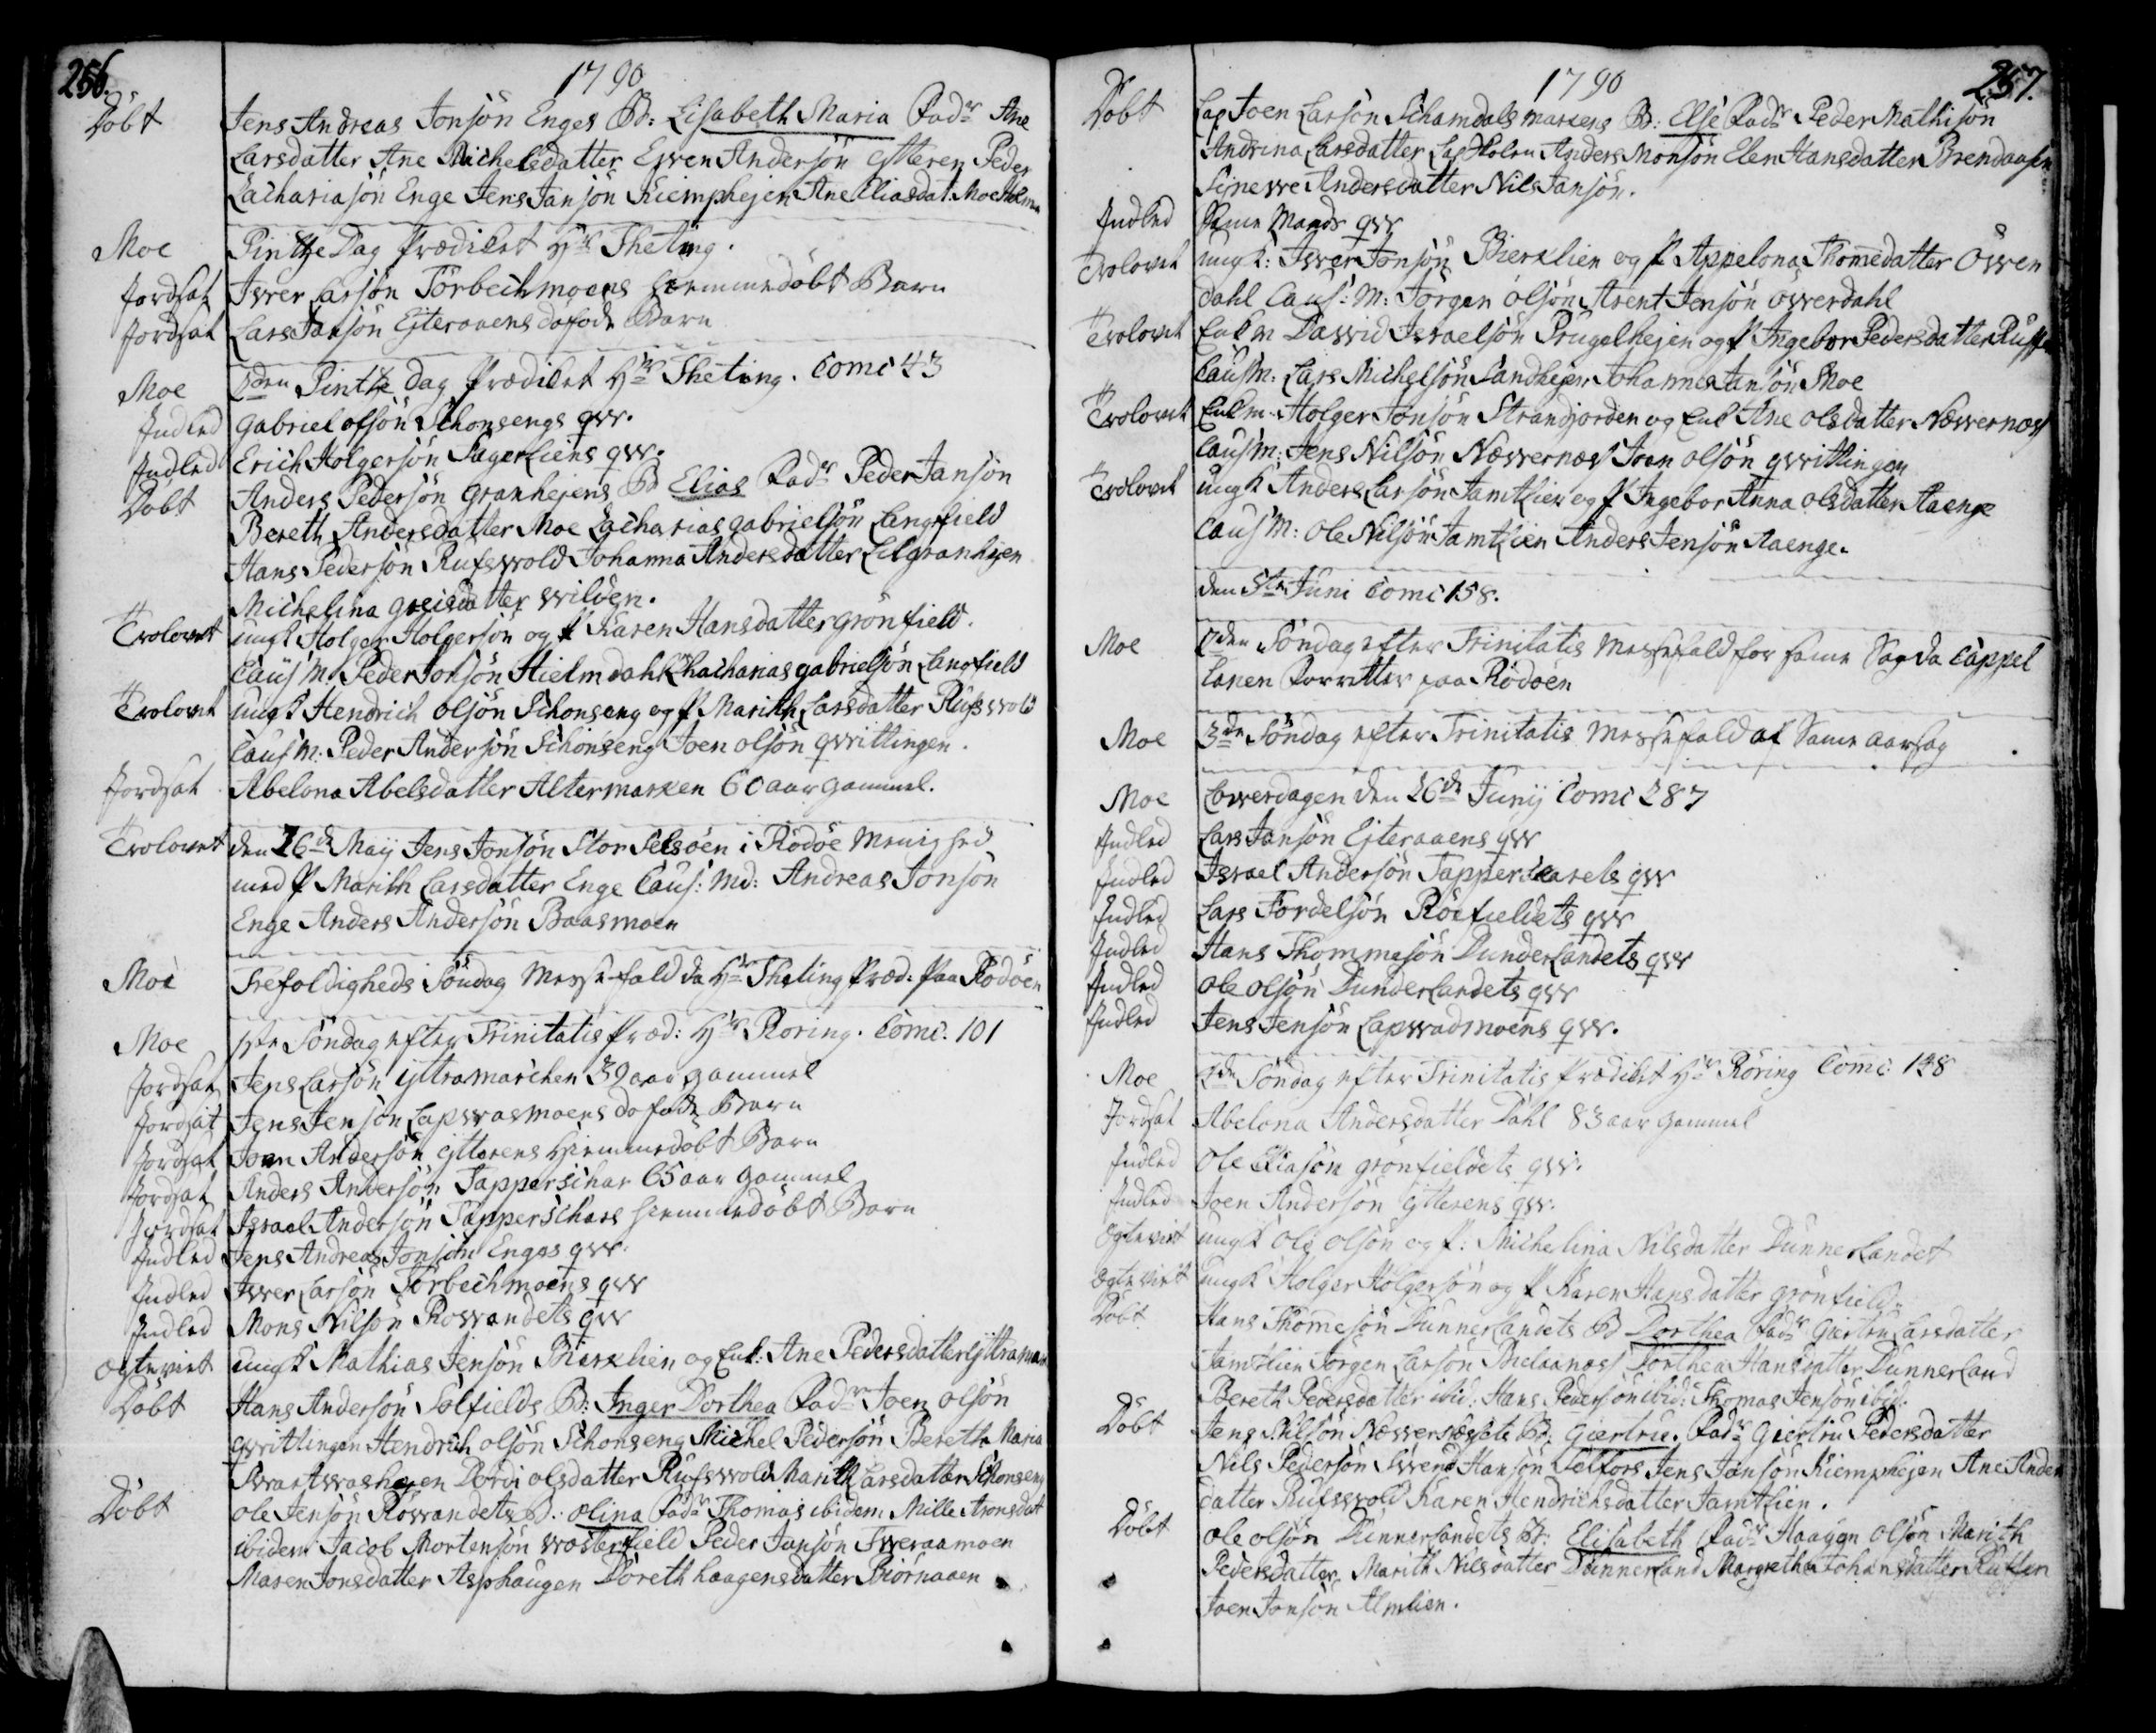 256.
1790
Döbt Jens Andreas Jonsön Enges B: Lisabeth Maria Fadr Ane
Larsdatter Ane Michelsdatter Ewen Andersön Ytteren Peder
Zachariasön Enge Jens Jansön Kiemphejen Ane Eliasdat. Moeholmen
Moe Pintze Dag Prædiket Hr Theting.
Jordsat Iver Larsön Törbechmoens hiemmedöbt Barn
Jordsat Lars Jansön Ejteraaens dafödt Barn
Moe 2den Pintze Dag Prædiket Hr Theting. Comc 43
Indled Gabriel olsön Schonsengs qvv.
Indled Erich Holgersön Sagerliens qvv.
Döbt Anders Pedersön Granhejens B Elias Fadr Peder Jansön
Bereth Andersdatter Moe Zacharias gabrielsön Langfield
Hans Pedersön Rufsvold Johanna Andersdatter Lilgranhejen
Michelina Greisdatter Wilden.
Trolovet ungk Holger Holgersön og P Karen Hansdatter Grönfield.
Caus M. Peder Jonsön Hielmdahl Zhacharias gabrielsön Langfield
Trolovet ungk Hendrich olsön Schonseng og P Marith Larsdatter Rufswold
Caus M: Peder Andersön Schonseng Joen olsön qvvitlingen.
Jordsat Abelona Abelsdatter Altermarken 60 aar gammel.
Trolovet den 26de Maij Jens Jonsön Stor Selsöen i Rödöe Menighed
med P Marith Larsdatter Enge Caus: Md: Andreas Jonsön
Enge Anders Andersön Baasmoen
Moe Trefoldigheds Söndag Messefald da Hr Theting Præd: paa Rödöen
Moe 1ste Söndag efter Trinitatis Præd: Hr Röring. Comc. 101
Jordsat Jens Larsön Yttramarchen 39 aar gammel
Jordsat Jens Jensön Lapvvasmoens dafödt Barn
Jordsat Joen Andersön Ytterens Hiemmedöbt Barn
Jordsat Anders Andersön Tapperschar 65 aar gammel
Jordsat Israel Andersön Tapperschars hiemmedöbt Barn
Indled Jens Andreas Jonsön Enges qvv.
Indled Iver Larsön Törbechmoens qvv
Indled Mons Nilsön Rosvandets qvv
Ægtevict ungk Mathias Jensön Bierklien og Enk: Ane Pedersdatter Yttramar
Döbt Hans Andersön Solfields B: Inger Dorthea Fadr Joen olsön
qvvitlingen Hendrich olsön Schonseng Michel Pedersön Bereth Maria
Svartvashejen Dordi olsdatter Rufsvold Marith Larsdatter Schonseng
Döbt ole Jensön Rösvandets B: olina Fadr Thomas ibidem Mille Aronsdat
ibidem Jacob Mortensön Wosterfield Peder Jansön Tveraamoen
Maren Jonsdatter Asphaugen Döreth haagensdatter Biörnaaen
257.
1790
Döbt Lap Joen Larsön Schamdalsmarkens B: Else Fadr Peder Mathisön
Andrina Larsdatter Lap Holen Anders Monsön Elen Hansdatter Brendaasen
Sirnevve Andersdatter Nils Jansön.
Indled Same Mands qvv
Trolovet ungk: Iver Jonsön Bierklien og P Appelona Thomedatter Övver
dahl Caus: M: Jörgen olsön Arent Jensön Övverdahl
Trolovet Enkm David Israelsön Prugelhejen og P Ingebor Pedersdatter
Caus M: Lars Michelsön Sandhejen Johannes Jansön Moe
Trolovet Enkm Holger Jonsön Strandjorden og Enk Ane olsdatter Nævernæss
Caus M: Jens Nilsön Nævernæss Joen olsön qvvitlingen
Trolovet ungk Anders Larsön Jamtlien og P Ingebor Anna olsdatter Aaenge
Caus M: ole Nilsön Jamtlien Anders Jensön Aaenge.
den 5te Juni Comc 158.
Moe 2den Söndag efter Trinitatis Messefald for same Sag da Cappel
lanen forretter paa Rödöen
Moe 3de Söndag efter Trinitatis Messefald af Same aarsag
Moe Löverdagen den 26de Junij Comc 287
Indled Lars Jansön Ejteraaens qvv
Indled Israel Andersön Tapperskarels qvv
Indled Lars Tordelsön Röefieldets qvv
Indled Hans Thommesön Dunderlandets qvv
Indled ole olsön Dunderlandets qvv
Indled Jens Jensön Lapvvadmoens qvv.
Moe 4de Söndag efter Trinitatis Prædiket Hr Röring Comc 148
Jordsat Abelona Andersdatter Dahl 83 aar gammel
Indled Ole Eliasön grönfieldets qvv.
Indled Joen Andersön Ytterens qvv.
Ægtevict ungk ole olsön og P: Michelina Nilsdatter Dunnerlandet
Ægtevict ungk Holger Holgersön og P Karen Hansdatter grönfield
Döbt Hans Thomesön Dunnerlandets B Dorthea Fadr Giertru Larsdatter
Jamtlien Jörgen Larsön Bielaanæss Dorthea Hansdatter Dunnerland
Bereth Pedersdatter ibid: Hans Pedersön ibid: Thomas Jensön ibid.
Döbt Jens Nilsön Nævernæssets B: Giertru. Fadr Giertru Pedersdatter
Nils Pedersön Svend Hansön Selfors Jens Jansön Kiemphejen Ane Anders
datter Rufsvold Karen Hendrichsdatter Jamtlien.
Döbt ole olsön Dunnerlandets B: Elisabeth Fadr Haagen olsön Marith
Pedersdatter Marith Nilsdatter Dunnerland Margretha Johansdatter
Joen Jonsön Almlien.